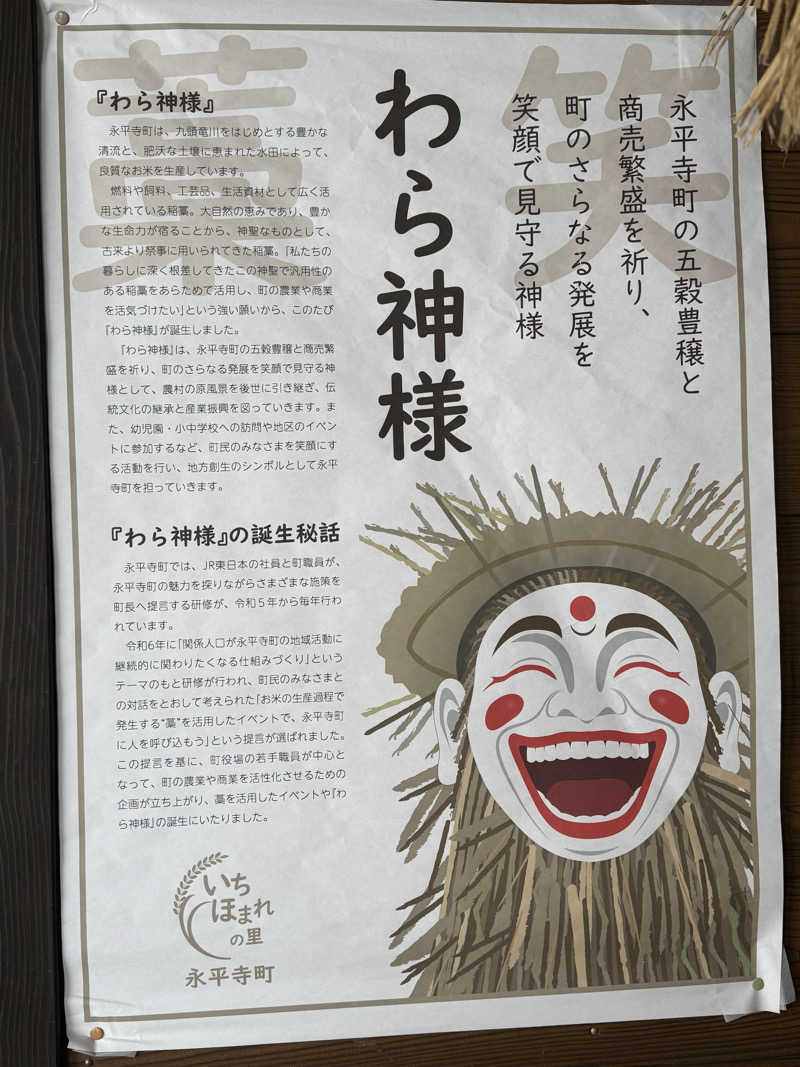 笑
藁
永平寺町の五穀豊穣と
商売繁盛を祈り、
町のさらなる発展を
笑顔で見守る神様
わら神様
『わら神様』
永平寺町は、九頭竜川をはじめとする豊かな
清流と、肥沃な土壌に恵まれた水田によって、
良質なお米を生産しています。
燃料や飼料、工芸品、生活資材として広く活
用されている稲藁。大自然の恵みであり、豊か
な生命力が宿ることから、神聖なものとして、
古来より祭事に用いられてきた稲藁。「私たちの
暮らしに深く根差してきたこの神聖で汎用性の
ある稲藁をあらためて活用し、町の農業や商業
を活気づけたい」という強い願いから、このたび
『わら神様』が誕生しました。
『わら神様』は、永平寺町の五穀豊穣と商売繁
盛を祈り、町のさらなる発展を笑顔で見守る神
様として、農村の原風景を後世に引き継ぎ、伝
統文化の継承と産業振興を図っていきます。ま
た、幼児園・小中学校への訪問や地区のイベン
トに参加するなど、町民のみなさまを笑顔にす
る活動を行い、地方創生のシンボルとして永平
寺町を担っていきます。
『わら神様』の誕生秘話
永平寺町では、JR東日本の社員と町職員が、
永平寺町の魅力を探りながらさまざまな施策を
町長へ提言する研修が、令和5年から毎年行わ
れています。
令和6年に「関係人口が永平寺町の地域活動に
継続的に関わりたくなる仕組みづくり」という
テーマのもと研修が行われ、町民のみなさまと
の対話をとおして考えられた「お米の生産過程で
発生する"藁"を活用したイベントで、永平寺町
に人を呼び込もう」という提言が選ばれました。
この提言を基に、町役場の若手職員が中心と
なって、町の農業や商業を活性化させるための
企画が立ち上がり、藁を活用したイベントや『わ
ら神様』の誕生にいたりました。
いち
ほまれ
の里
永平寺町